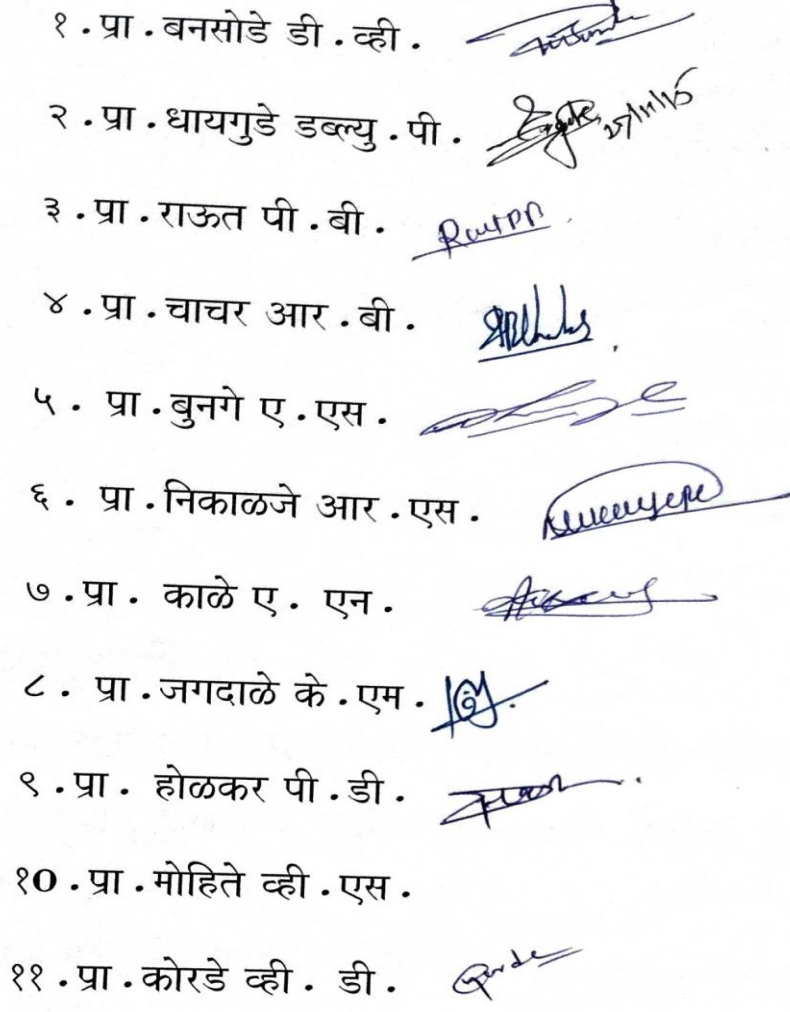 १.प्रा.बनसोडे डी.व्ही.
२.प्रा.धायगुडे डब्ल्यु.पी.
३.प्रा.राऊत पी.बी. Raut PB
४.प्रा.चाचर आर.बी.
५. प्रा.बुनगे ए.एस.
६. प्रा.निकाळजे आर.एस.
७.प्रा. काळे ए. एन.
८. प्रा.जगदाळे के.एम.
९.प्रा. होळकर पी.डी.
१0.प्रा.मोहिते व्ही.एस.
११.प्रा.कोरडे व्ही. डी.